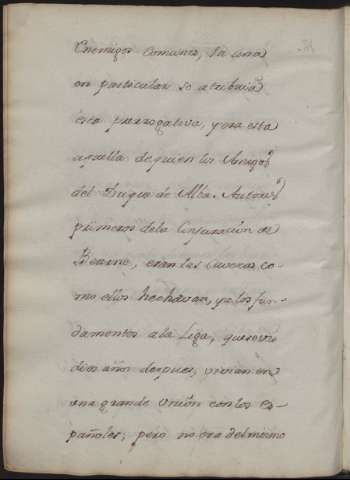 Enemigos comunes, la una
en particular se atribuia
esta prerrogativa, y era esta
aquella de quien los Amigos
del Duque de Alba. Autores
primeros dela Conjuración de
Bearne, eran las
mo ellos hechavan, ya los fun-
damentos a la Liga, que
dies años despues, vivian en
una grande Unión con los es-
pañoles; pero no era del mismo